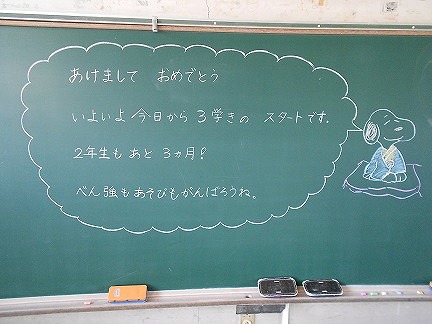 あけまして おめでとう
いよいよ今日から3学きの スタートです.
2年生も あと 3ヵ月!
べん強もあそびもがんばろうね。